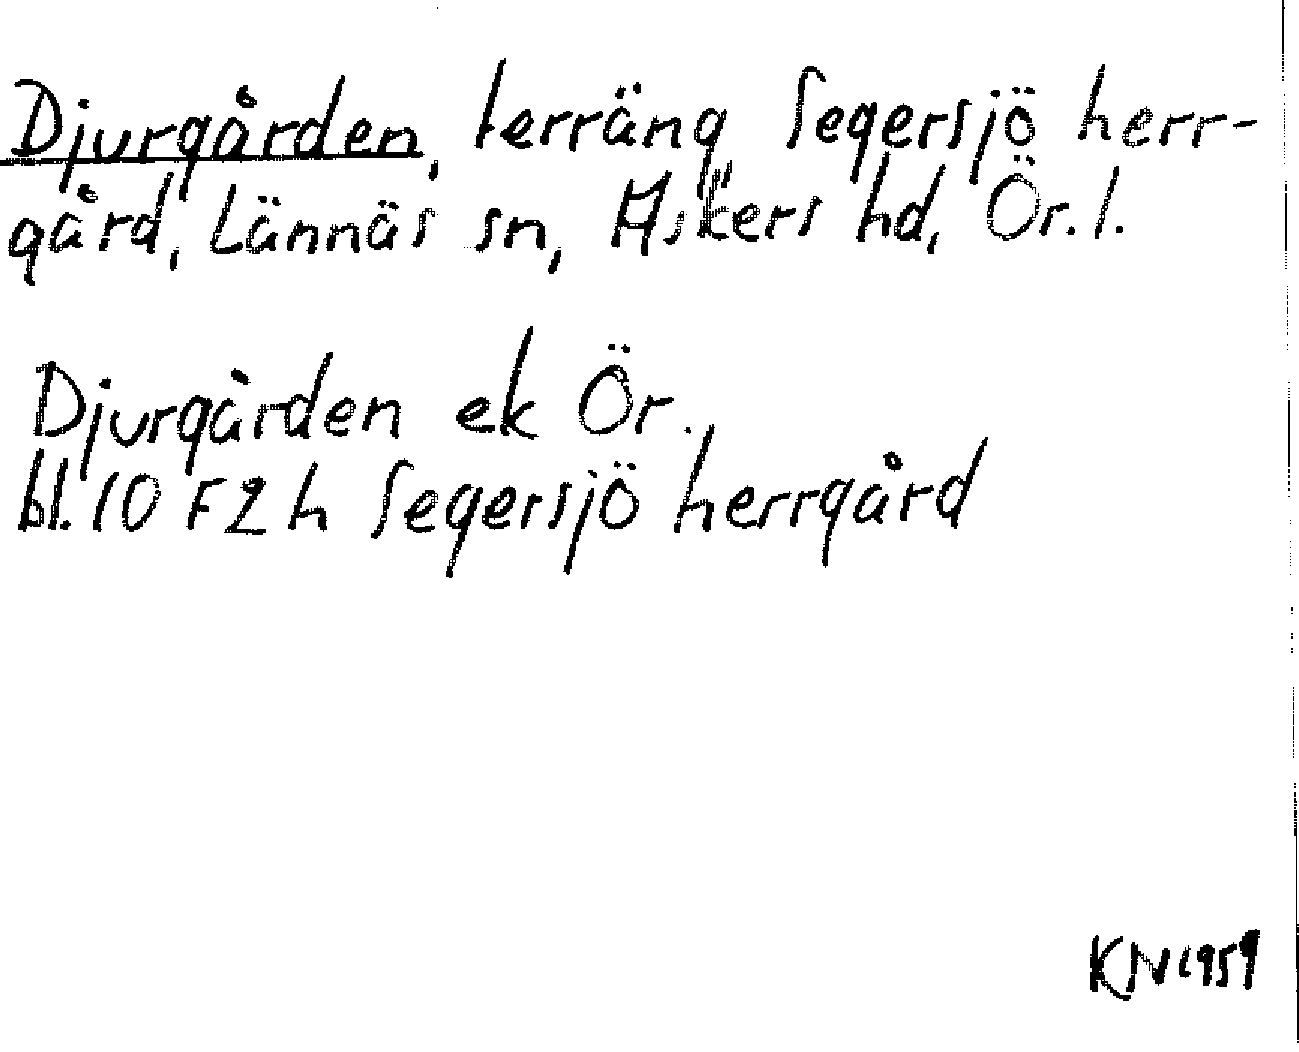 Djurgården, terräng, Segersjö herr-
gård, Lännäs sn, Askers hd, Ör. l.
Djurgården ek Ör.,
bl. 10 F 2 h Segersjö herrgård
KN 1959